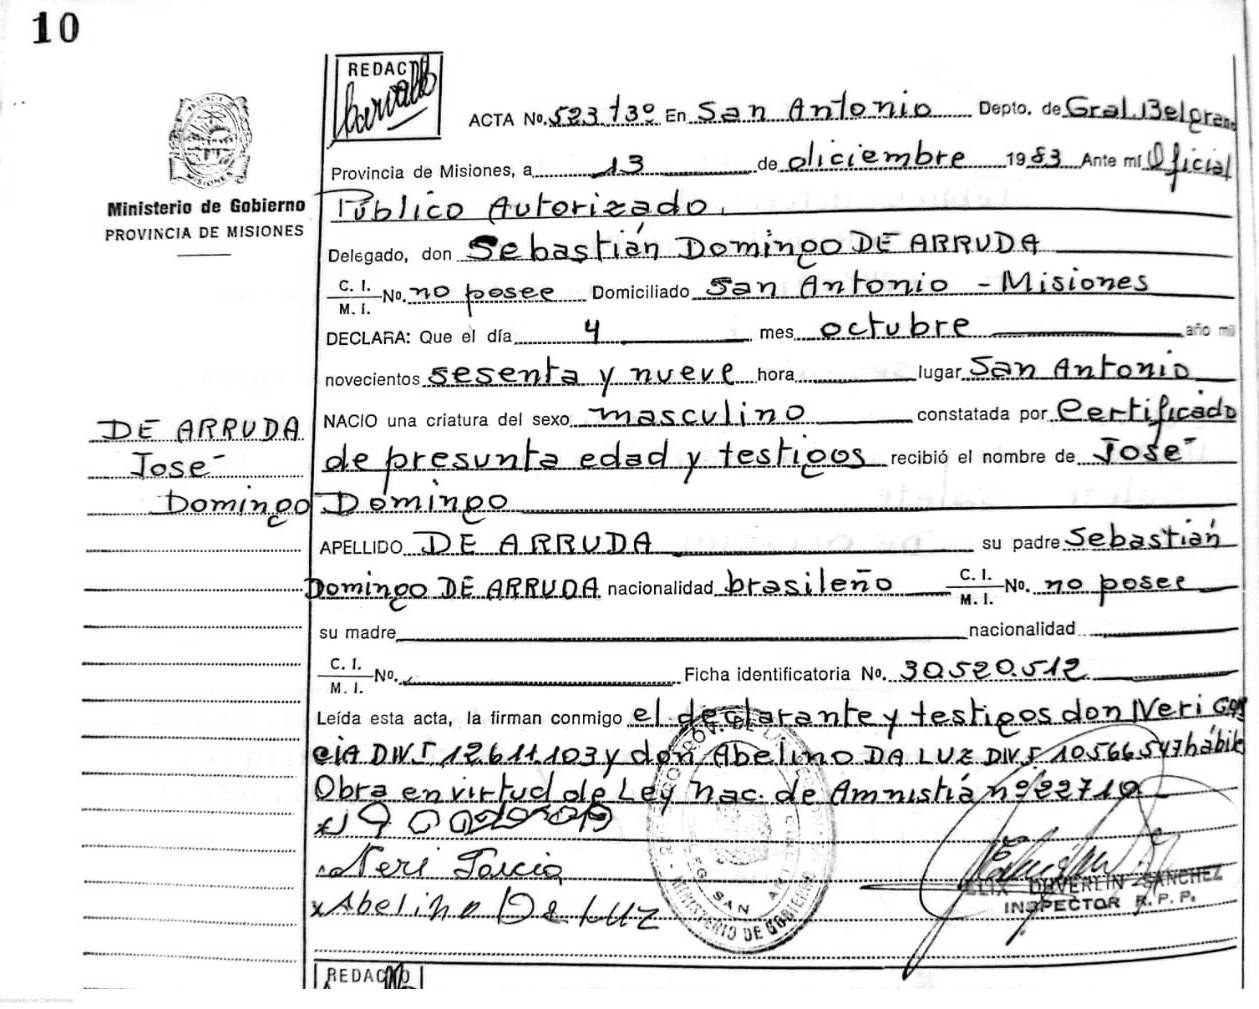 10
REDACTO
Carvallo
ACTA No. 523 t 3º En San Antonio Depto. de Gral. Belgrano
Provincia de Misiones, a 13 de diciembre 1983 Ante mí Oficial
Ministerio de Gobierno
PROVINCIA DE MISIONES
Público Autorizado.
Delegado, don Sebastián Domingo DE ARRUDA
C. I. M. I. No. no posee Domiciliado San Antonio - Misiones
DECLARA: Que el día 4 mes octubre año mil
novecientos sesenta y nueve hora lugar San Antonio
NACIO una criatura del sexo masculino constatada por Certificado
DE ARRUDA
José
Domingo
de presunta edad y testigos recibió el nombre de José
Domingo
APELLIDO DE ARRUDA su padre Sebastián
Domingo DE ARRUDA nacionalidad brasileño C. I. M. I. No. no posee
su madre nacionalidad
C. I. M. I. No. Ficha identificatoria No. 30.520.512
Leída esta acta, la firman conmigo el declarante y testigos don Neri GAR
CIA DNI 12.611.103 y don Abelino DA LUZ DNI 10566547 hábil
Obra en virtud de Ley Nac. de Amnistiá nº 22710
Neri Garcia
x Abelino De Luz
SAN ANTONIO
MINISTERIO DE GOBIERNO
FELIX DUVERLIN SANCHEZ
INSPECTOR R. P. P.
REDACTO